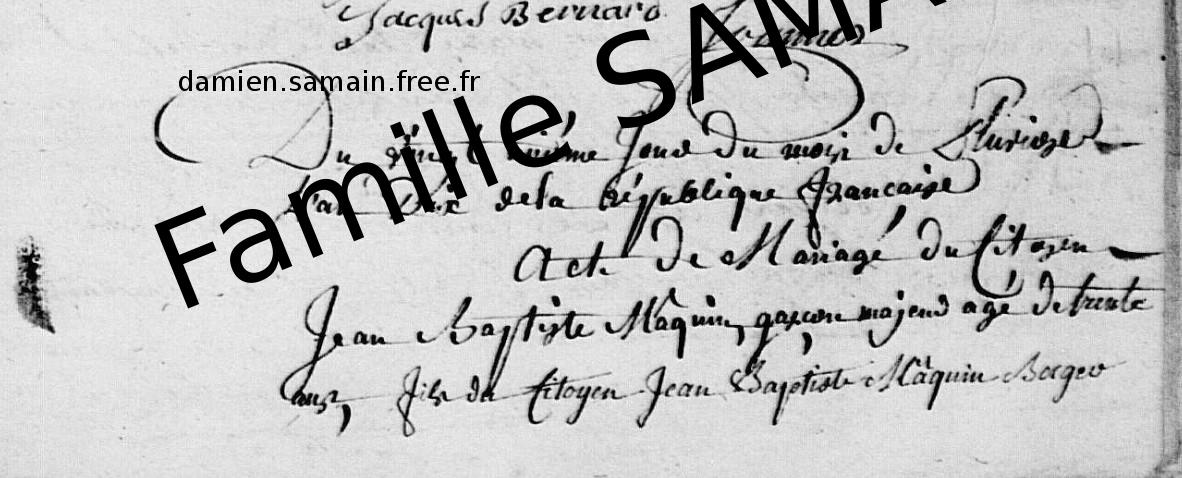 Jacques Bernard
damien.samain.free.fr
Famille SAMA
Du vingt uniéme Jour du mois de Pluviose
L'an Dix de la république française
Acte De Mariage du Citoyen
Jean Baptiste Maquin, garcon majeur agé de trente
ans, fils du Citoyen Jean Baptiste Maquin Berger